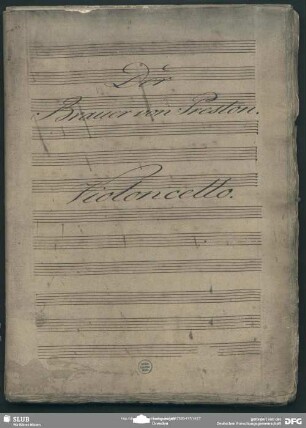 Der
Brauer von Preston.
Violoncello.
SLUB
Wir führen Wissen.
Deutsche Forschungsgemeinschaft
DFG